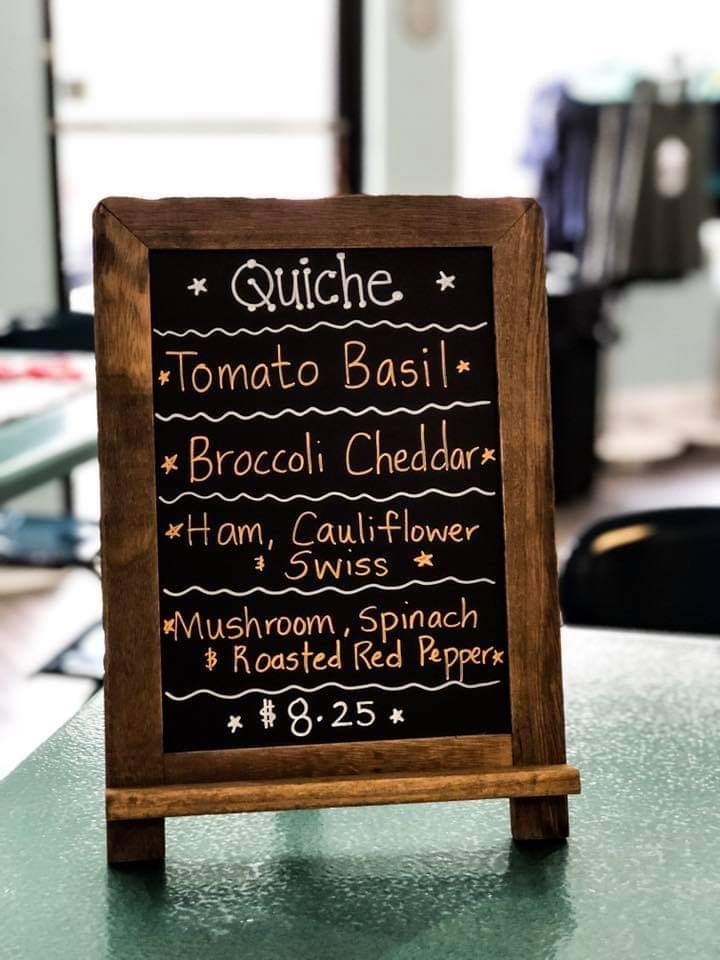 * Quiche *
*Tomato Basil*
* Broccoli Cheddar*
*Ham, Cauliflower
& Swiss *
*Mushroom, Spinach
& Roasted Red Pepper*
* $8.25 *